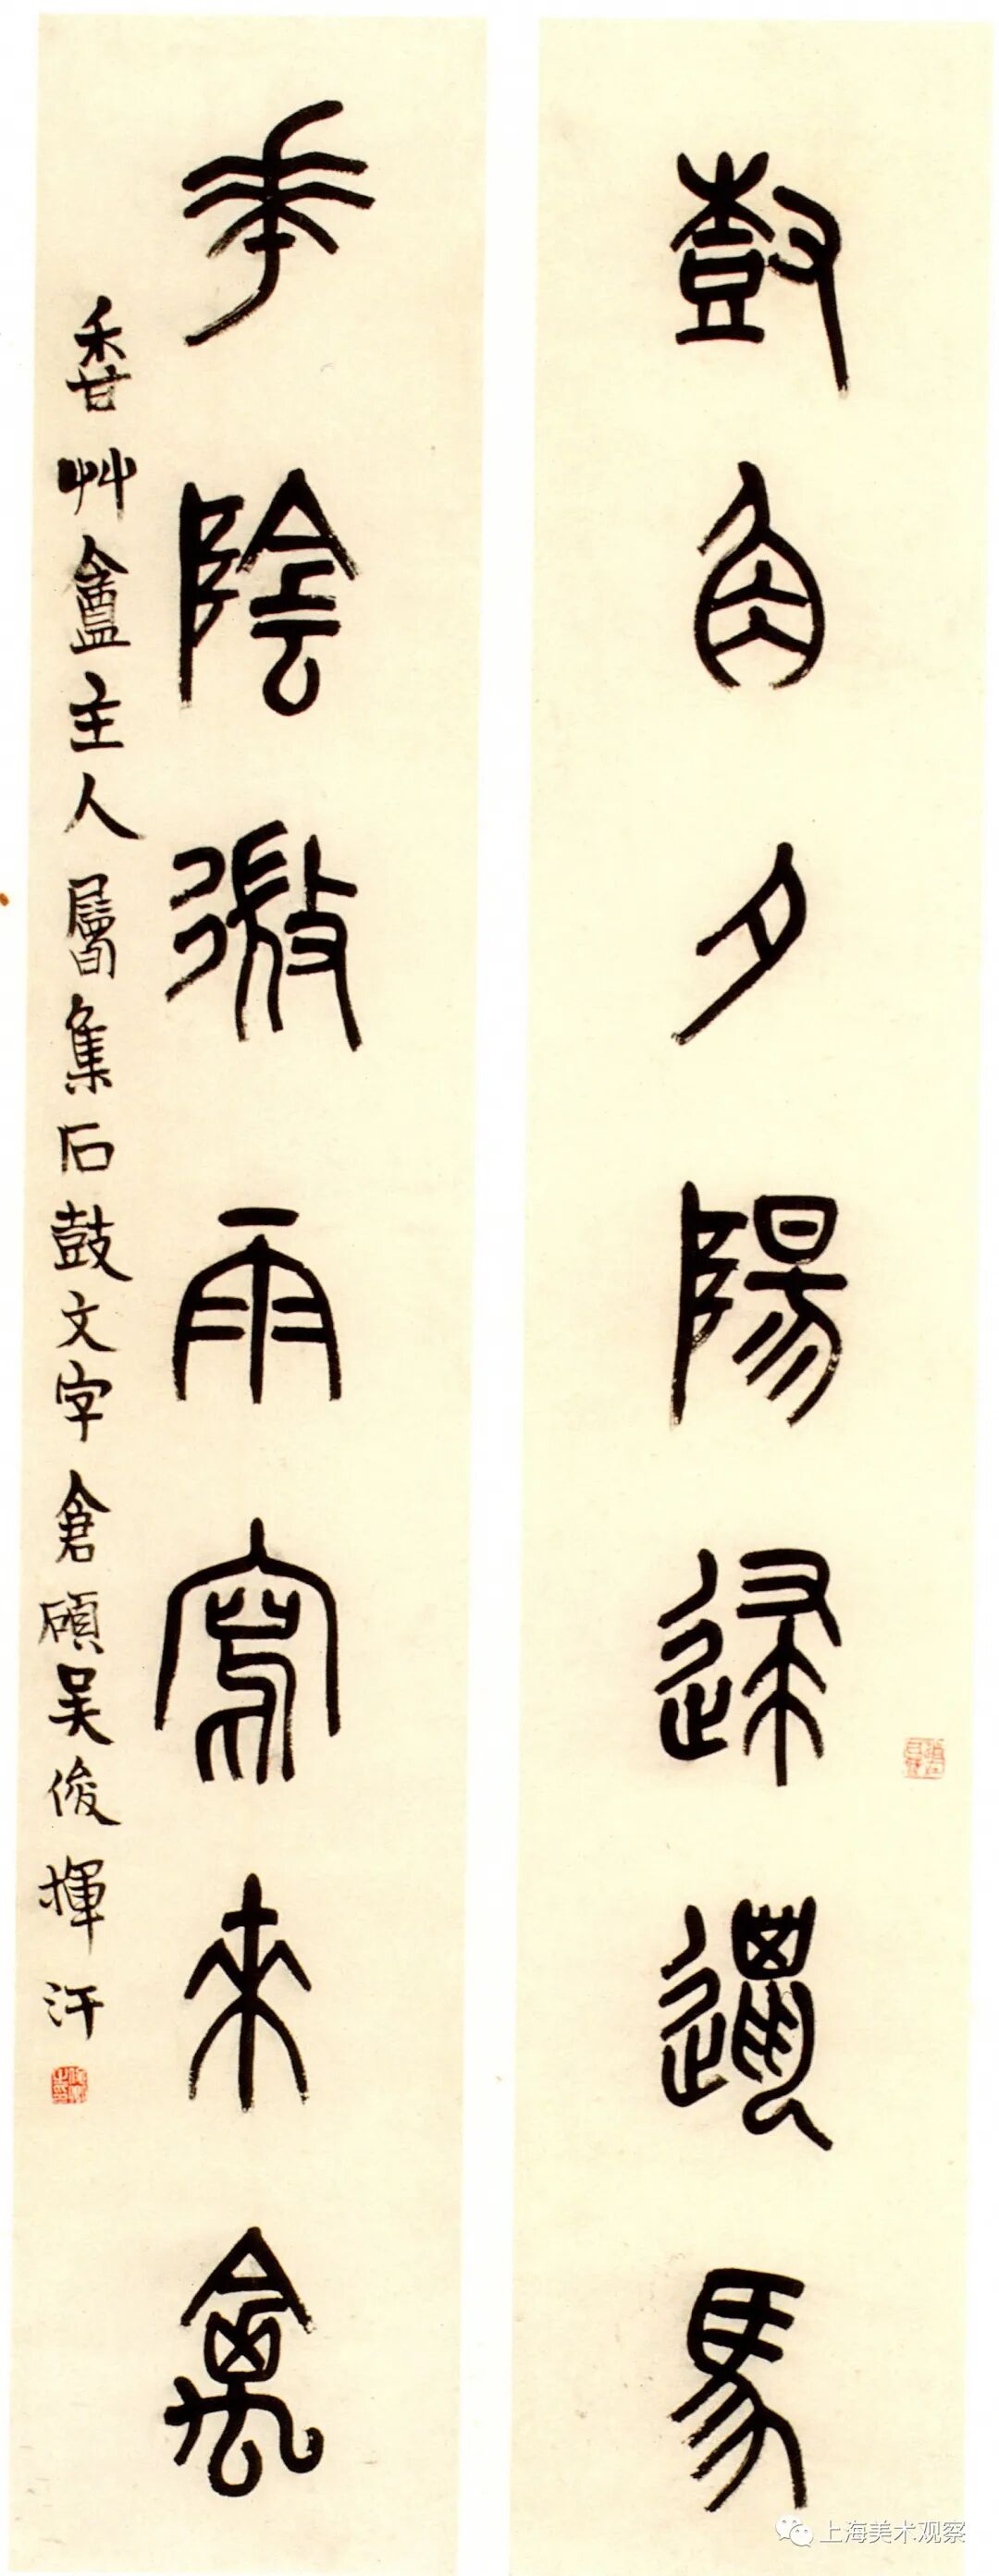 鼓角夕陽歸邋馬
華陰微雨寫來禽
香艸盦主人屬集石鼓文字倉碩吴俊揮汗
上海美术观察